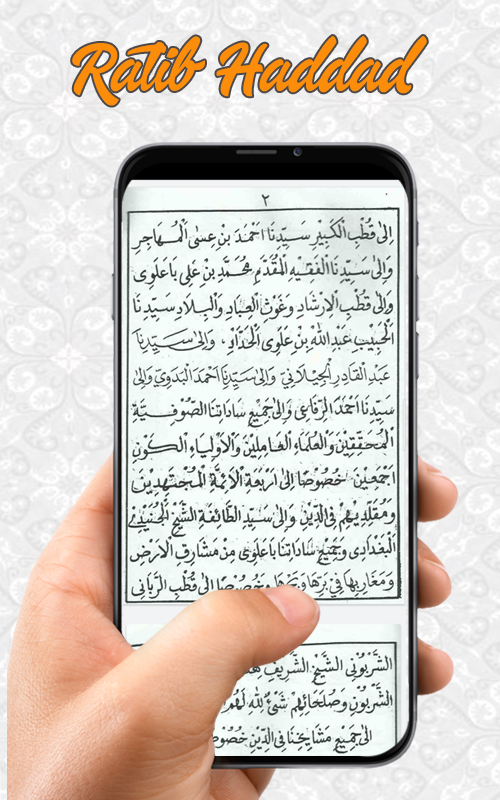 Ratib Haddad
٢
اِلٰى قُطْبِ الْكَبِيْرِ سَيِّدِنَا اَحْمَدَ بْنِ عِسٰى الْمُهَاجِرِ
وَاِلٰى سَيِّدِنَا الْفَقِيْهِ الْمُقَدَّمِ مُحَمَّدِ بْنِ عَلِى بَاعَلَوِى
وَاِلٰى قُطْبِ الْاِرْشَادِ وَغَوْثِ الْعِبَادِ وَالْبِلَادِ سَيِّدِنَا
الْحَبِيْبِ عَبْدِ اللّٰهِ بْنِ عَلَوِى الْحَدَّادِ، وَاِلٰى سَيِّدِنَا
عَبْدِ الْقَادِرِ الْجِيْلَانِيْ وَاِلٰى سَيِّدِنَا اَحْمَدَ الْبَدَوِىْ وَاِلٰى
سَيِّدِنَا اَحْمَدَ الرِّفَاعِى وَاِلٰى جَمِيْعِ سَادَاتِنَا الصُّوْفِيَّةِ
الْمُحَقِّقِيْنَ وَالْعُلَمَاءِ الْعَامِلِيْنَ وَالْاَوْلِيَاءِ الْكَوْنِ
اَجْمَعِيْنَ خُصُوْصًا اِلٰى اَرْبَعَةِ الْاَئِمَّةِ الْمُجْتَهِدِيْنَ
وَمُقَلِّدِيْهِمْ فِى الدِّيْنِ وَاِلٰى سَيِّدِ الطَّائِفَةِ الشَّيْخِ الْجُنَيْدِىْ
الْبَغْدَادِى وَجَمِيْعِ سَادَاتِنَا بَاعَلَوِى مِنْ مَشَارِقِ الْاَرْضِ
وَمَغَارِبِهَا فِيْ بَرِّهَا وَبَحْرِهَا خُصُوْصًا اِلٰى قُطْبِ الرَّبَّانِى
الشَّرْبُوْنِى الشَّيْخِ الشَّرِيْفِ
الشَّرْبُوْنِ وَصُلَحَائِهِمْ شَيْءٌ لِلّٰهِ لَهُمُ
اِلٰى جَمِيْعِ مَشَايِخِنَا فِى الدِّيْنِ